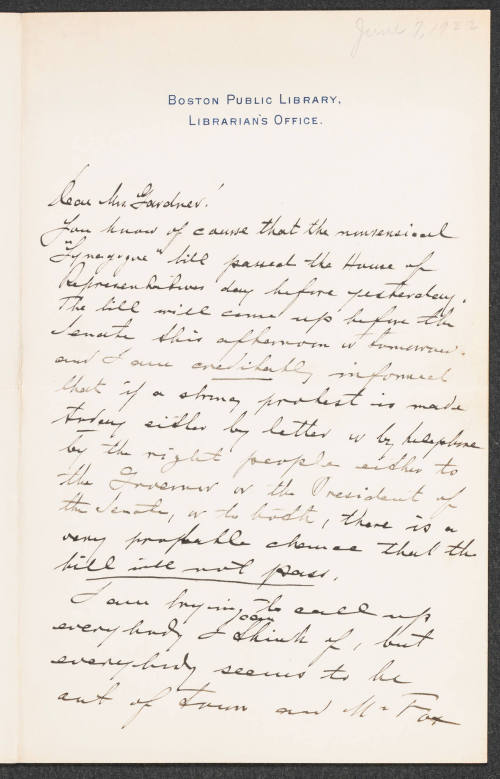 June 7, 1922
BOSTON PUBLIC LIBRARY,
LIBRARIAN'S OFFICE.
Dear Mrs. Gardner:
You know of course that the nonsensical
"Synagogue" bill passed the House of
Representatives day before yesterday.
The bill will come up before the
Senate this afternoon or tomorrow.
and I am creditably informed
that if a strong protest is made
today either by letter or by telephone
by the right people either to
the Governor or the President of
the Senate, or to both, there is a
very probable chance that the
bill will not pass.
I am trying to call up
everybody I can think of, but
everybody seems to be
out of town and Mr Fox